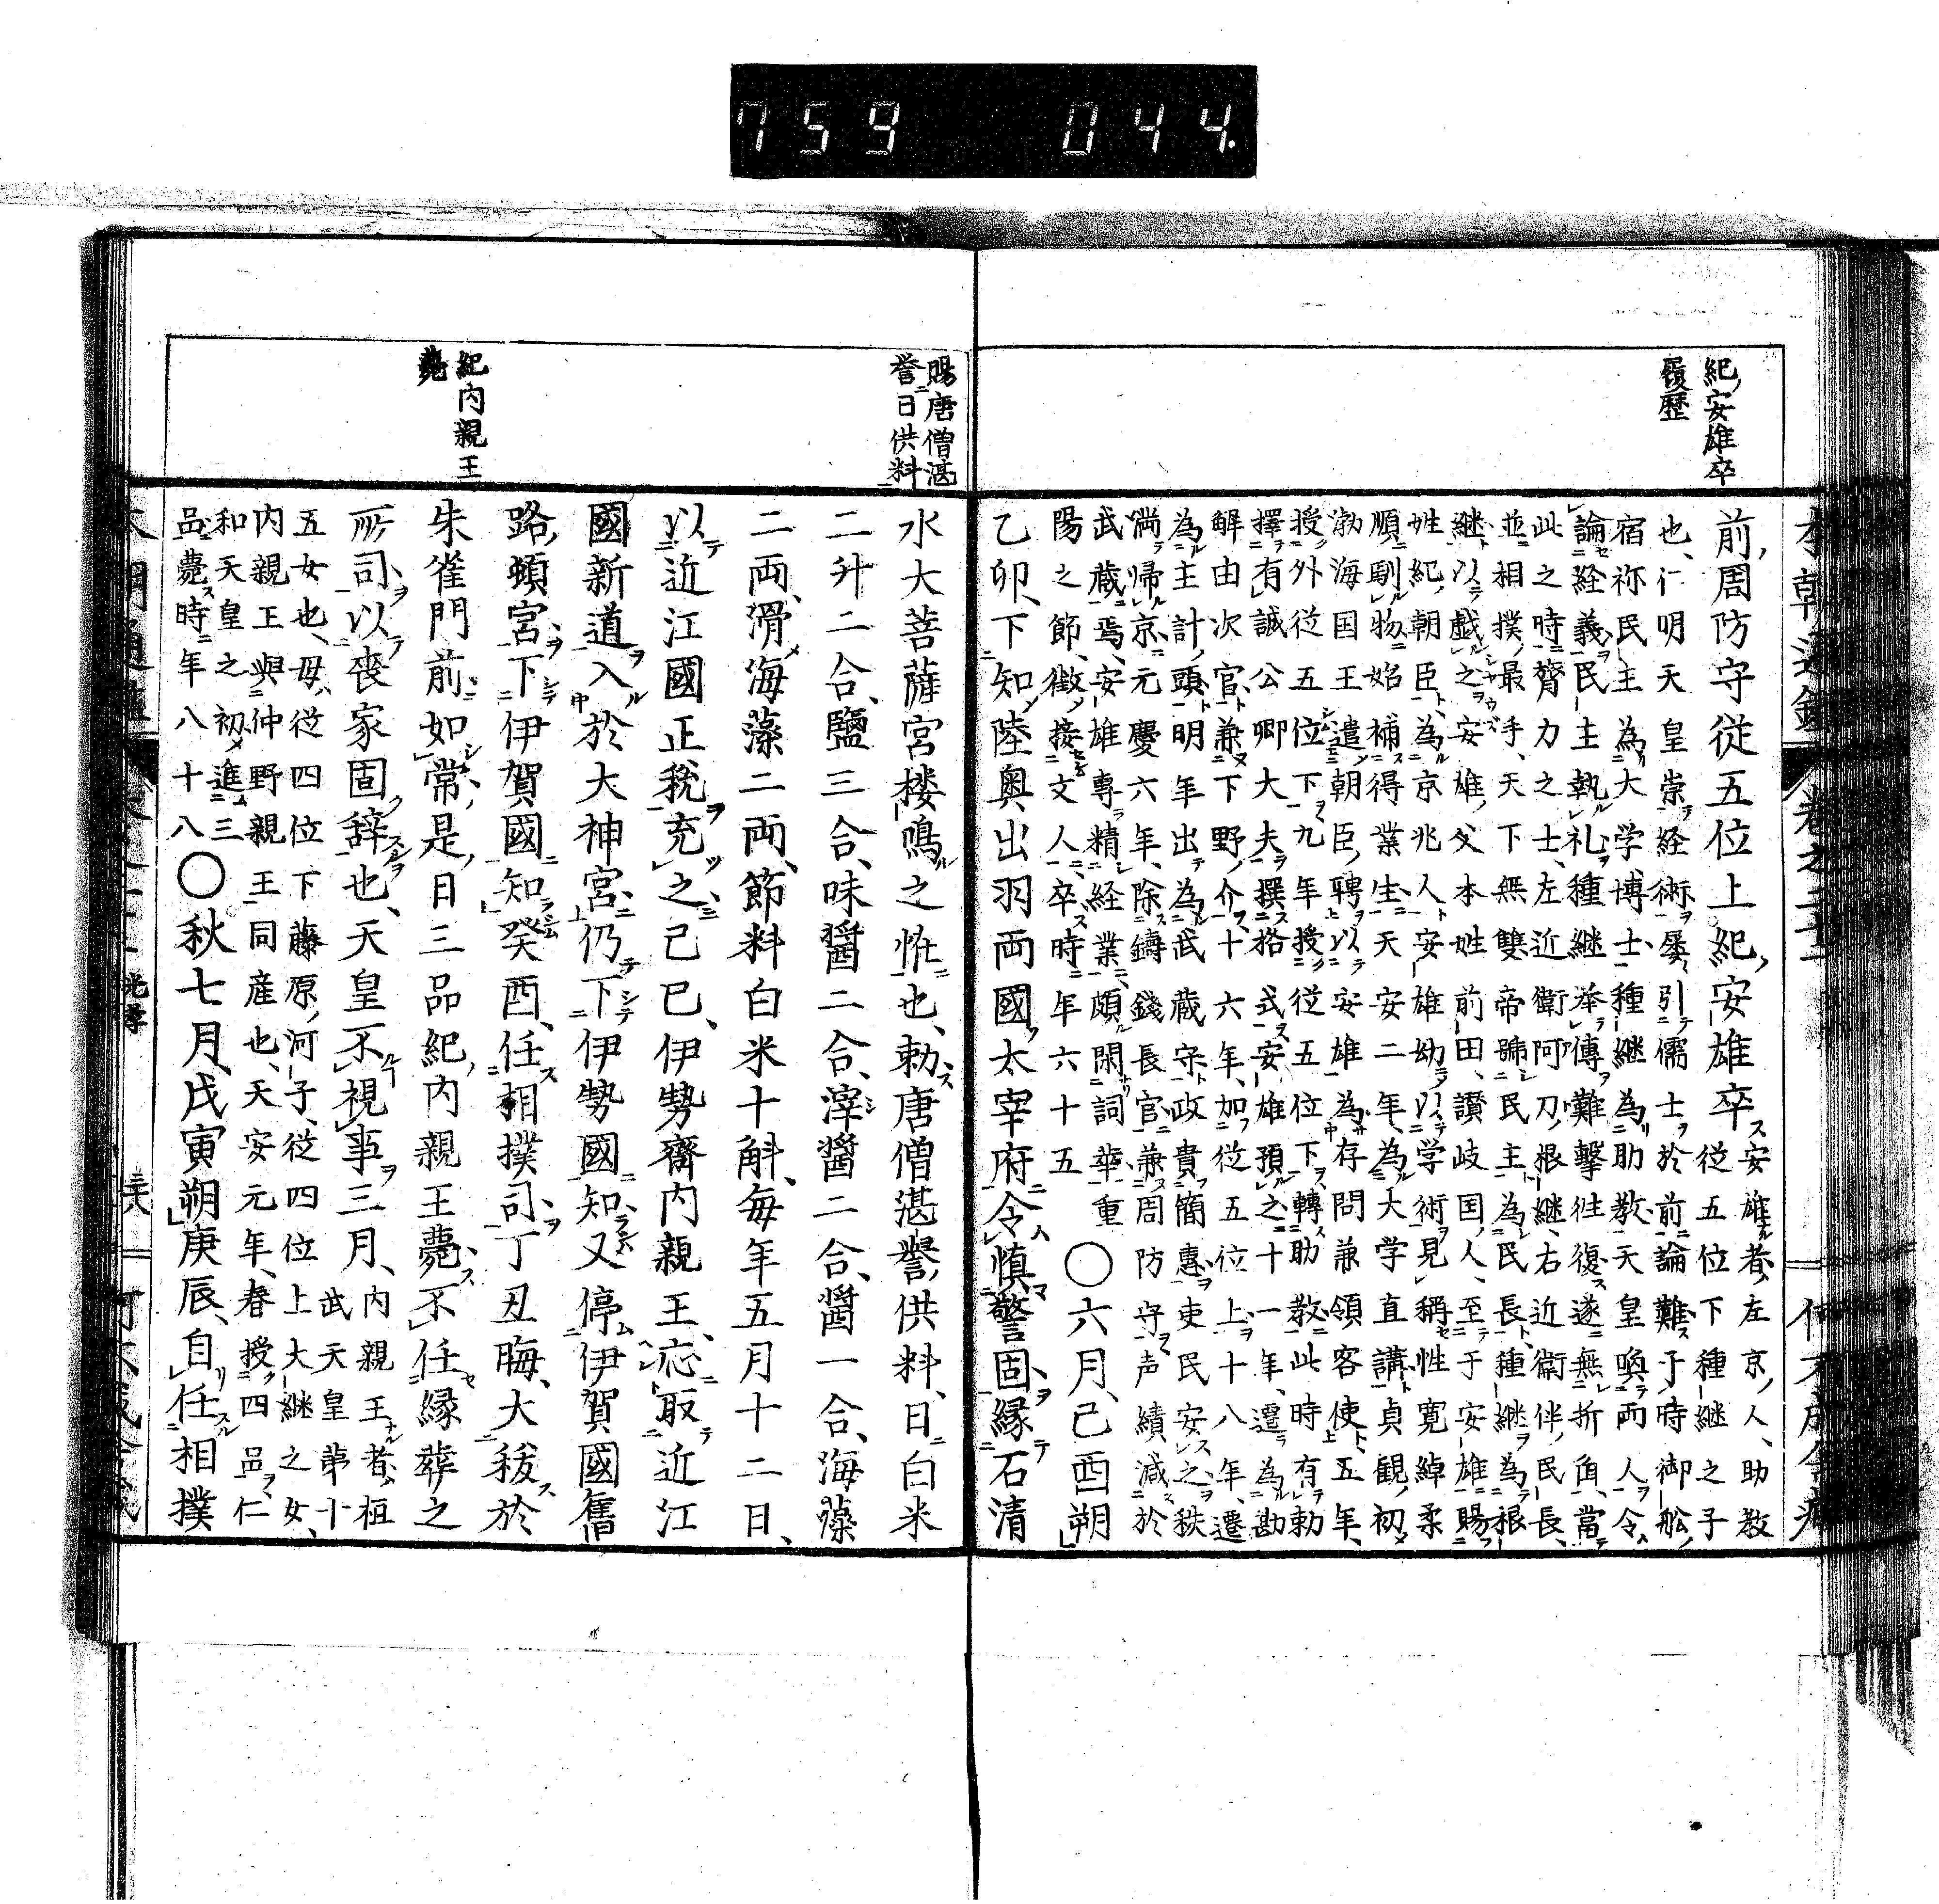 759 044.
紀安雄卒
履歴
前周防守従五位上紀安雄卒安雄者左京人助教
従五位下種継之子
也仁明天皇崇経術屡引儒士於前論難于時御舩
宿祢民主為大学博士種継為助教天皇喚両人令
論経義民主執礼種継挙傳難撃往復遂無折角當
此之時膂力之士左近衛阿刀根継右近衛伴民長
並相撲最手天下無雙帝号民主為民長種継為根
継以戯之安雄父本姓前田讃岐国人至于安雄賜
姓紀朝臣為京兆人安雄幼以学術見稱性寛綽柔
順馴物始補得業生天安二年為大学直講貞観初
渤海国王遣朝臣聘以安雄為存問兼領客使五年
授外従五位下九年授従五位下轉助教此時有勅
擇有誠公卿大夫撰格式安雄預之十一年遷為勘
解由次官兼下野介十六年加従五位上十八年遷
為主計頭明年出為武蔵守政貴簡恵吏民安之秩
満帰京元慶六年除鑄錢長官兼周防守声績減於
武蔵焉安雄專精経業頗閑詞華重
陽之節徴接文人卒時年六十五
〇六月己酉朔
乙卯下知陸奥出羽両國太宰府令慎警固縁石清
賜唐僧湛
誉日供料
水大菩薩宮楼鳴之恠也勅唐僧湛誉供料日白米
二升二合鹽三合味醤二合滓醤二合醤一合海藻
二両滑海藻二両節料白米十斛毎年五月十二日
以近江國正税充之己巳伊勢齋内親王応取近江
國新道入於大神宮仍下伊勢國知又停伊賀國舊
路頓宮下伊賀國知癸酉任相撲司丁丑晦大秡於
朱雀門前如常是日三品紀内親王薨不任縁葬之
所司以喪家固辞也天皇不視事三月内親王者桓
武天皇第十
五女也母従四位下藤原河子従四位上大継之女
内親王與仲野親王同産也天安元年春授四品仁
和天皇之初進三
品薨時年八十八〇秋七月戊寅朔庚辰自任相撲
紀内親王
薨